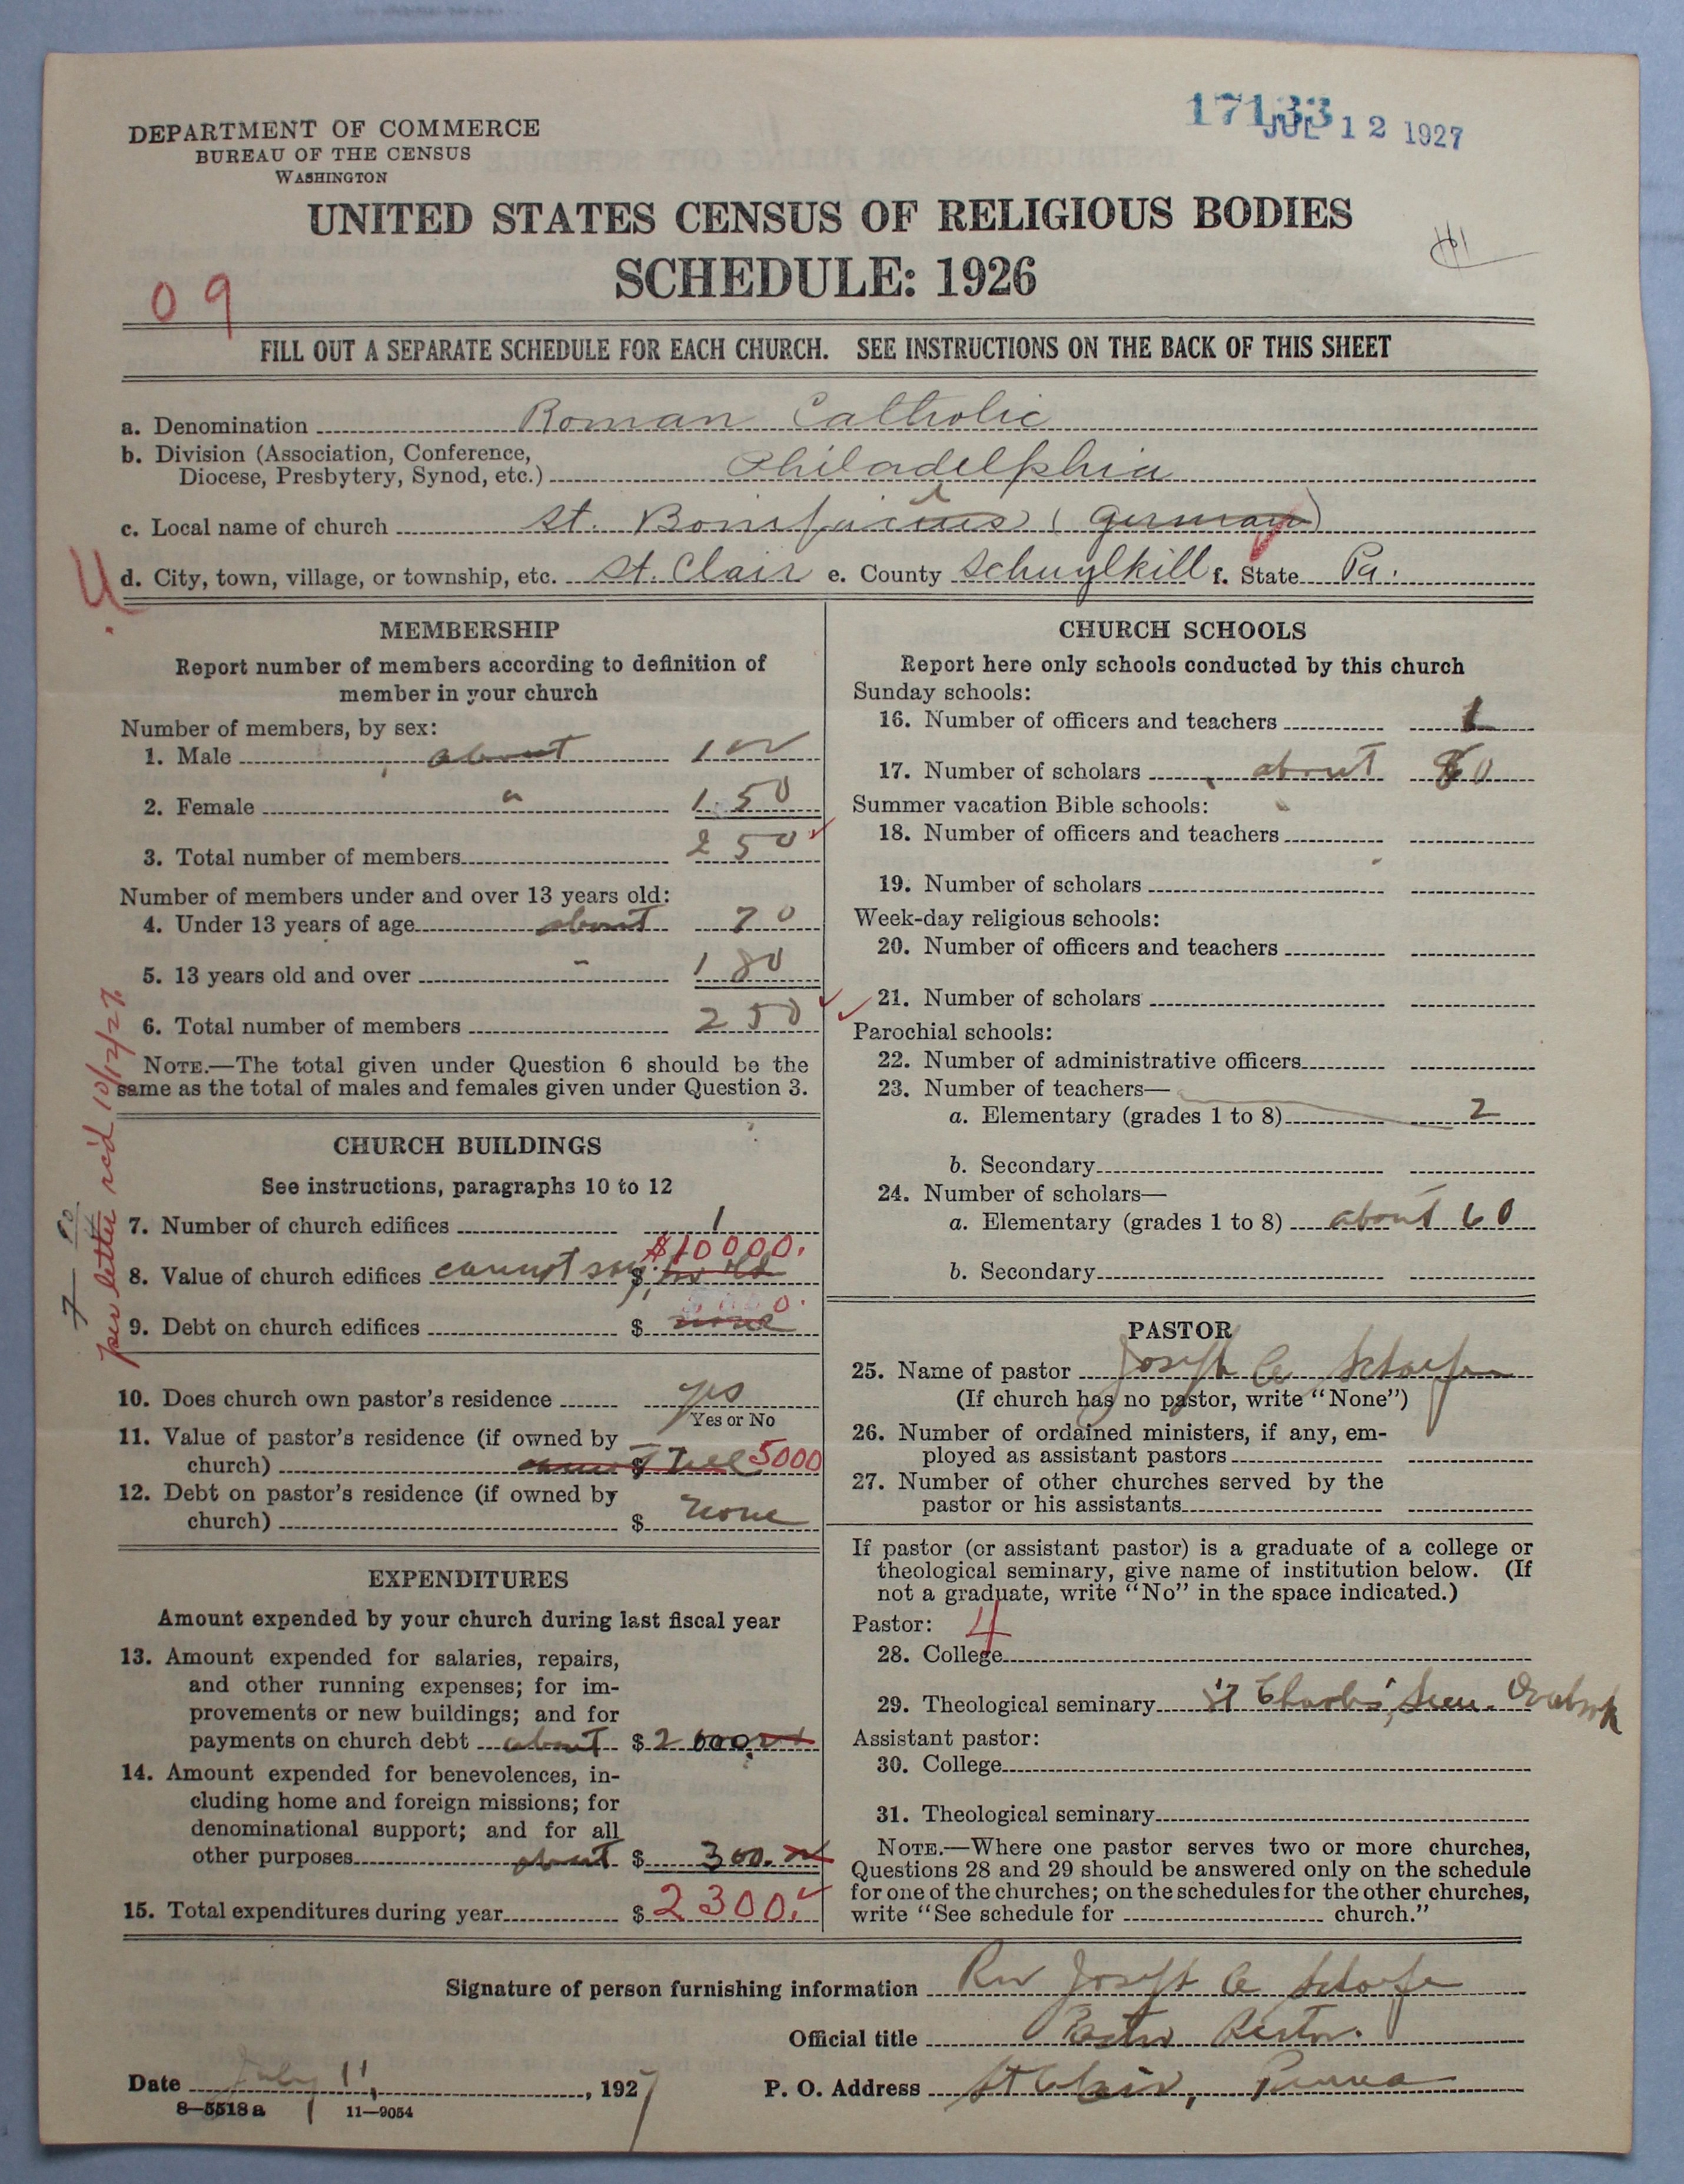 17133
JUL 12 1927
DEPARTMENT OF COMMERCE
BUREAU OF THE CENSUS
WASHINGTON
UNITED STATES CENSUS OF RELIGIOUS BODIES
SCHEDULE: 1926
09
FILL OUT A SEPARATE SCHEDULE FOR EACH CHURCH. SEE INSTRUCTIONS ON THE BACK OF THIS SHEET
a. Denomination Roman Catholic
b. Division (Association, Conference,
Diocese, Presbytery, Synod, etc.) Philadelphia
c. Local name of church St. Bonifacius (German)
U d. City, town, village, or township, etc. St. Clair e. County Schuylkill f. State Pa.
MEMBERSHIP
Report number of members according to definition of
member in your church
Number of members, by sex:
1. Male about 100
2. Female " 150
3. Total number of members 250
Number of members under and over 13 years old:
4. Under 13 years of age about 70
5. 13 years old and over " 180
6. Total number of members 250
NOTE.—The total given under Question 6 should be the
same as the total of males and females given under Question 3.
per letter rec'd 10/12/27
CHURCH BUILDINGS
See instructions, paragraphs 10 to 12
7. Number of church edifices 1
$10000.
8. Value of church edifices cannot say, $ too old
9. Debt on church edifices $ none
10. Does church own pastor's residence yes
Yes or No
11. Value of pastor's residence (if owned by
church) cannot $ tell 5000
12. Debt on pastor's residence (if owned by
church) $ none
EXPENDITURES
Amount expended by your church during last fiscal year
13. Amount expended for salaries, repairs,
and other running expenses; for im-
provements or new buildings; and for
payments on church debt about $ 2000.
14. Amount expended for benevolences, in-
cluding home and foreign missions; for
denominational support; and for all
other purposes about $ 300.
15. Total expenditures during year $ 2300.
CHURCH SCHOOLS
Report here only schools conducted by this church
Sunday schools:
16. Number of officers and teachers 1
17. Number of scholars about 60
Summer vacation Bible schools:
18. Number of officers and teachers
19. Number of scholars
Week-day religious schools:
20. Number of officers and teachers
21. Number of scholars
Parochial schools:
22. Number of administrative officers
23. Number of teachers—
a. Elementary (grades 1 to 8) 2
b. Secondary
24. Number of scholars—
a. Elementary (grades 1 to 8) about 60
b. Secondary
PASTOR
25. Name of pastor Joseph A Schaefer
(If church has no pastor, write "None")
26. Number of ordained ministers, if any, em-
ployed as assistant pastors
27. Number of other churches served by the
pastor or his assistants
If pastor (or assistant pastor) is a graduate of a college or
theological seminary, give name of institution below. (If
not a graduate, write "No" in the space indicated.)
Pastor: 4
28. College
29. Theological seminary St Charles' Sem. Overbrook
Assistant pastor:
30. College
31. Theological seminary
NOTE.—Where one pastor serves two or more churches,
Questions 28 and 29 should be answered only on the schedule
for one of the churches; on the schedules for the other churches,
write "See schedule for church."
Signature of person furnishing information Rev Joseph A Schaefer
Official title Rector.
Date July 11, 1927 P. O. Address St Clair, Penna
8—5518 a 11—9054